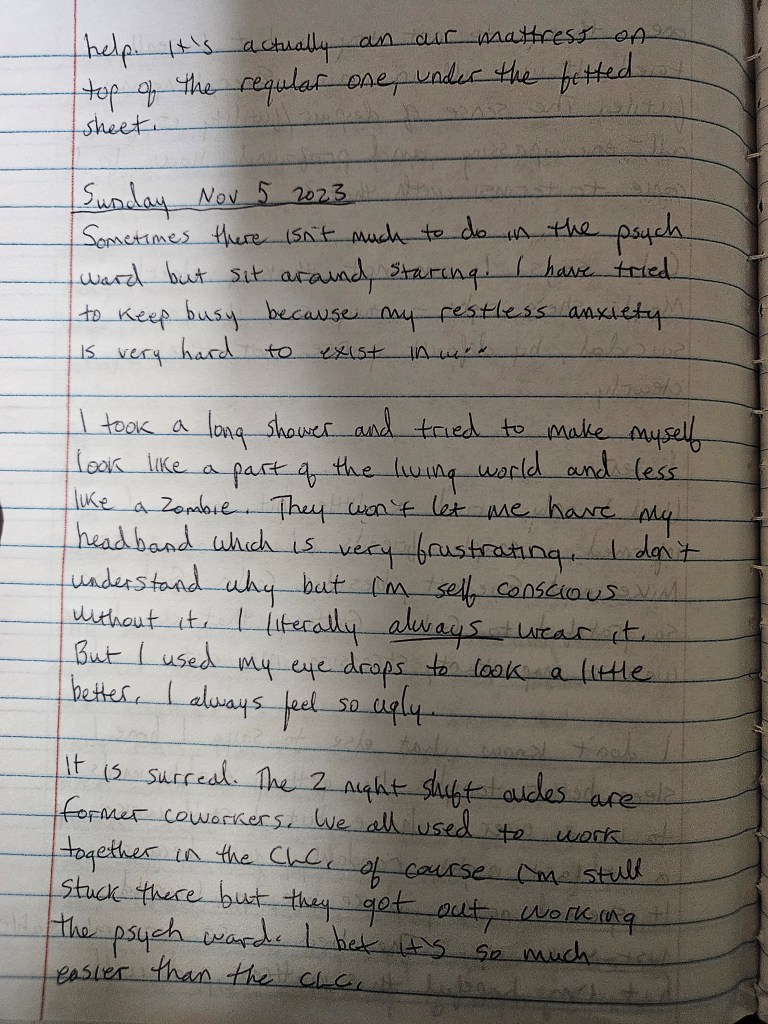 help. It's actually an air mattress on
top of the regular one, under the fitted
sheet.
Sunday Nov 5 2023
Sometimes there isn't much to do in the psych
ward but sit around, staring. I have tried
to keep busy because my restless anxiety
is very hard to exist in...
I took a long shower and tried to make myself
look like a part of the living world and less
like a zombie. They won't let me have my
headband which is very frustrating. I don't
understand why but I'm self conscious
without it. I literally always wear it.
But I used my eye drops to look a little
better. I always feel so ugly.
It is surreal. The 2 night shift aides are
former coworkers. We all used to work
together in the CLC. Of course I'm still
stuck there but they got out, working
the psych ward. I bet it's so much
easier than the CLC.